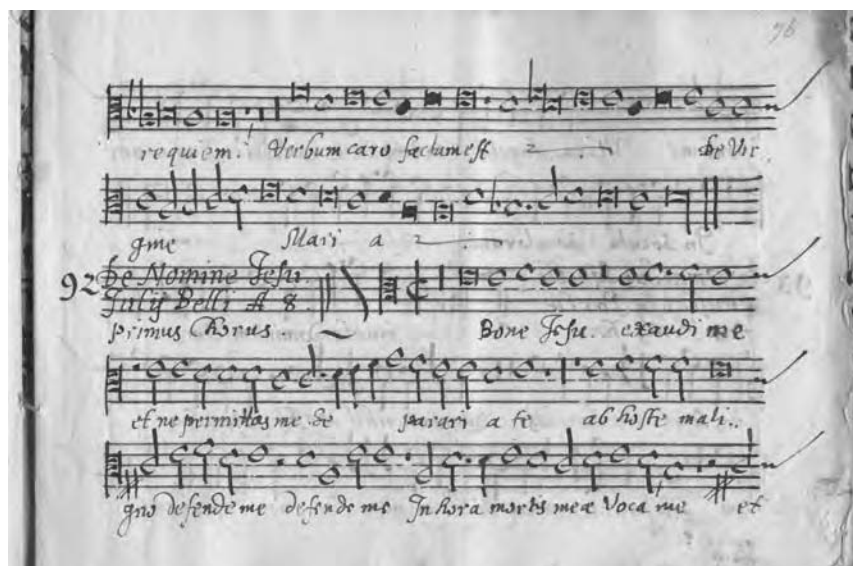 76
requiem. Verbum caro factum est 2 De Vir
gine Mari a 2
92 De Nomine Jesu
Julij Belli A 8.
primus Chorus Bone Jesu. exaudi me
et ne permittas me se parari a te ab hoste mali..
gno defende me defende me In hora mortis meæ Voca me et